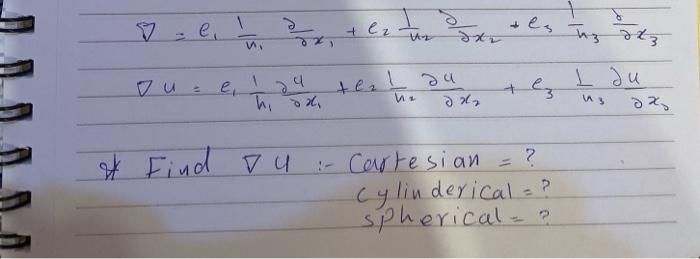 ∇ = e₁ 1/h₁ ∂/∂x₁ + e₂ 1/h₂ ∂/∂x₂ + e₃ 1/h₃ ∂/∂x₃
∇u = e₁ 1/h₁ ∂u/∂x₁ + e₂ 1/h₂ ∂u/∂x₂ + e₃ 1/h₃ ∂u/∂x₃
* Find ∇u :- Cartesian = ?
cylinderical = ?
spherical = ?